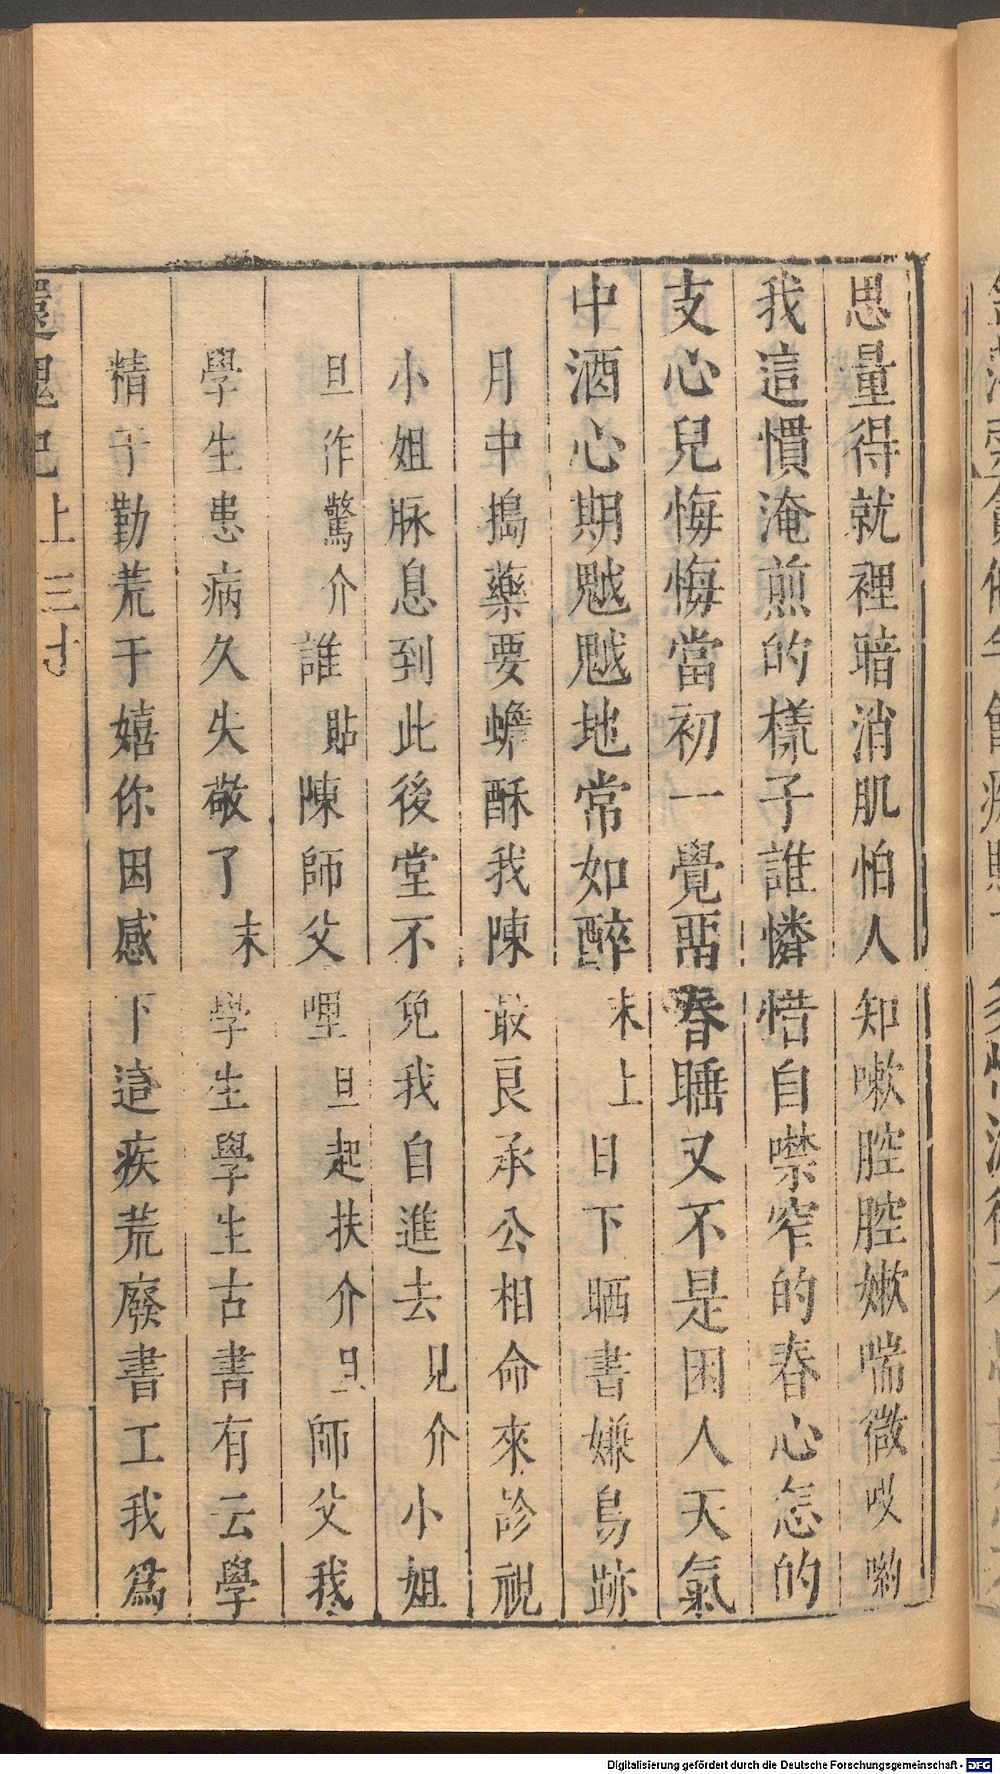 思量得就裡暗消肌怕人知嗽腔腔嫩喘微哎喲
我這慣淹煎的樣子誰憐惜自噤窄的春心怎的
支心兒悔悔當初一覺畱春睡又不是困人天氣
中酒心期魆魆地常如醉末上日下晒書嫌鳥跡
月中搗藥要蟾酥我陳最良承公相命來診視
小姐脉息到此後堂不免我自進去見介小姐
旦作驚介誰貼陳師父哩旦起扶介旦師父我
學生患病久失敬了末學生學生古書有云學
精于勤荒于嬉你因感下這疾荒廢書工我爲
還魂記上三十
Digitalisierung gefördert durch die Deutsche Forschungsgemeinschaft - DFG